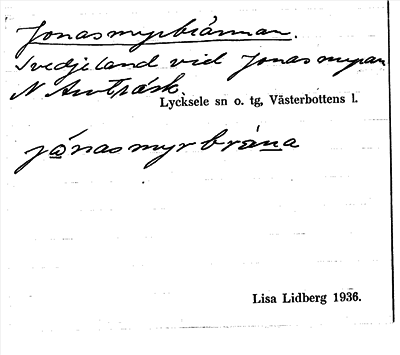 Jonasmyrbrännan.
Svedjeland vid Jonasmyran
N
Lycksele sn o. tg, Västerbottens l.
jo̲nasmyrbrän̲a
Lisa Lidberg 1936.